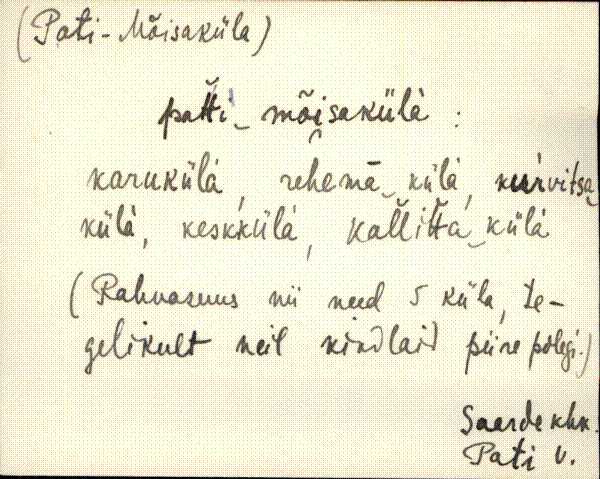 (Pati-Mõisaküla)
pat̆t̆i‿mõisakülà :
karukülà, rehemā‿külà, kurvitsa‿
külà, keskkülà, kal̆lit̆tà‿külà
(Rahvasuus nii need 5 küla, te-
gelikult neil kindlaid piire polegi.)
Saarde khk.
Pati v.